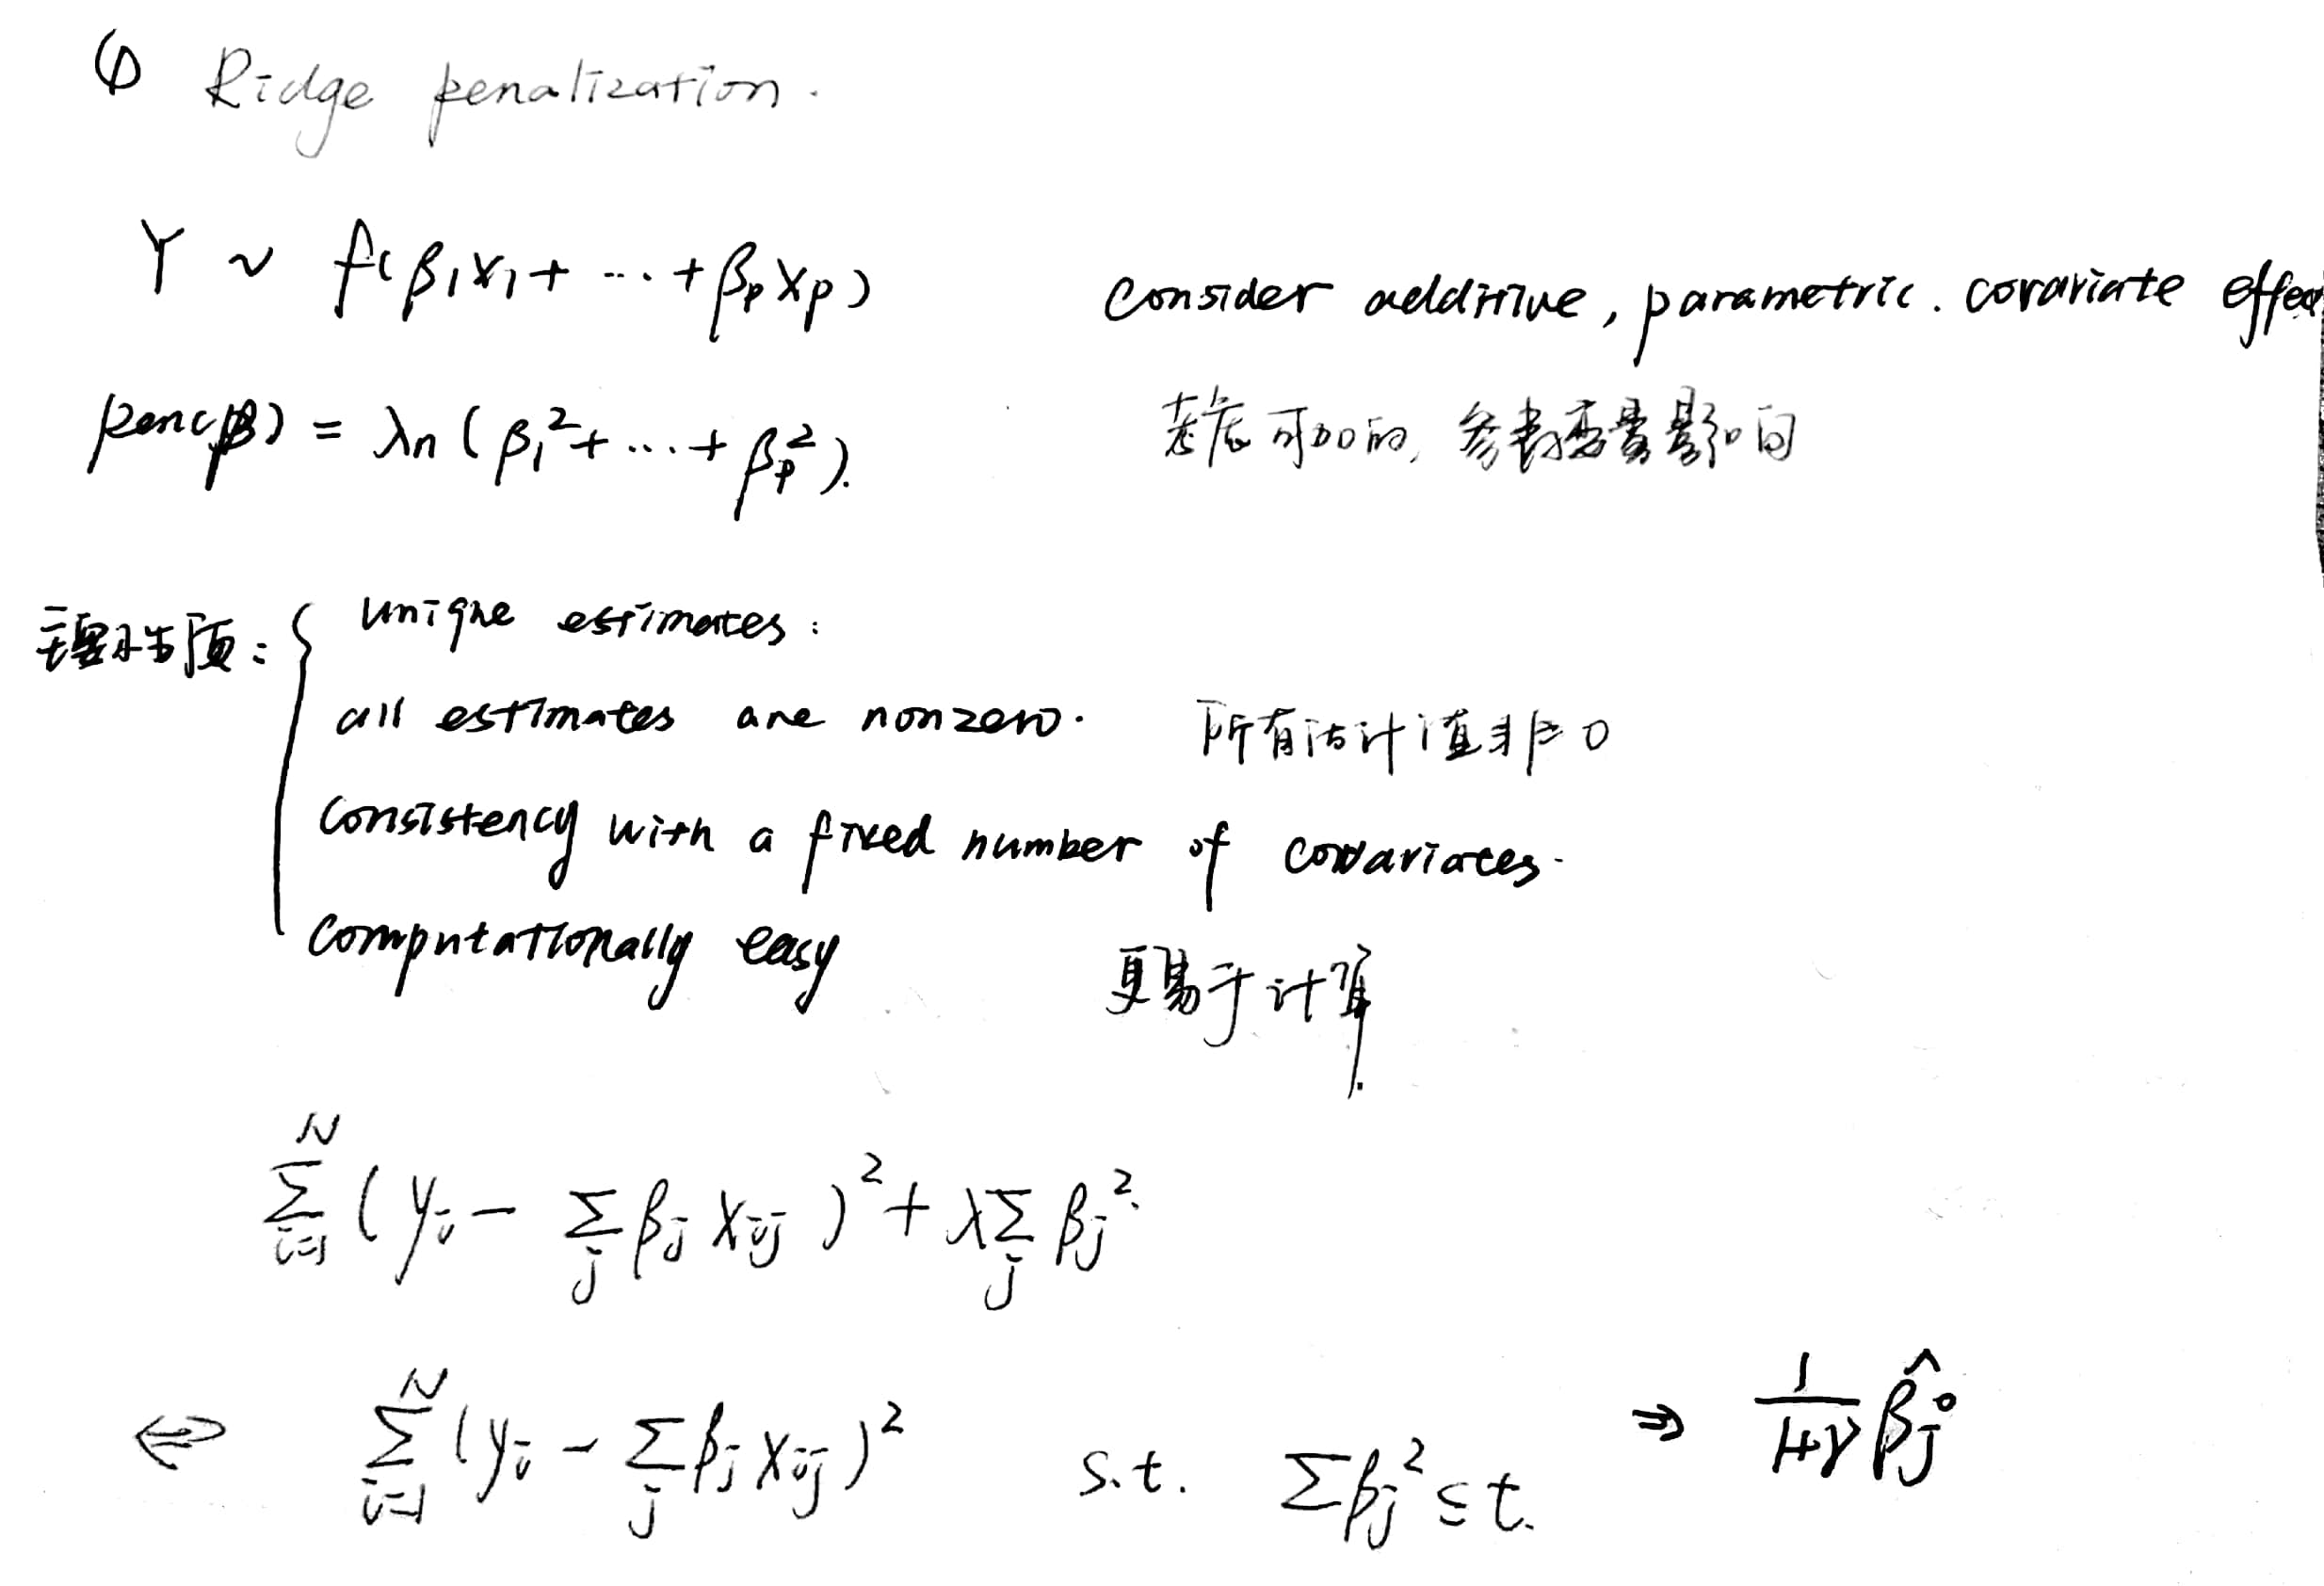 ① Ridge penalization.
Y ~ f(β₁x₁+ ⋯ +βₚxₚ) Consider additive, parametric. covariate effec
pen(β) = λn(β₁²+⋯+βₚ²). 考虑可加的, 参数变量影响
理论性质: unique estimates:
all estimates are nonzero. 所有估计值非0
Consistency with a fixed number of covariates.
Computationally easy 更易于计算.
∑ᵢ₌₁ᴺ (yᵢ - ∑ⱼ βⱼ xᵢⱼ)² + λ∑ⱼ βⱼ²
⇔ ∑ᵢ₌₁ᴺ (yᵢ - ∑ⱼ βⱼ xᵢⱼ)² s.t. ∑βⱼ² ≤ t. ⇒ 1/(1+γ) β̂ⱼ⁰